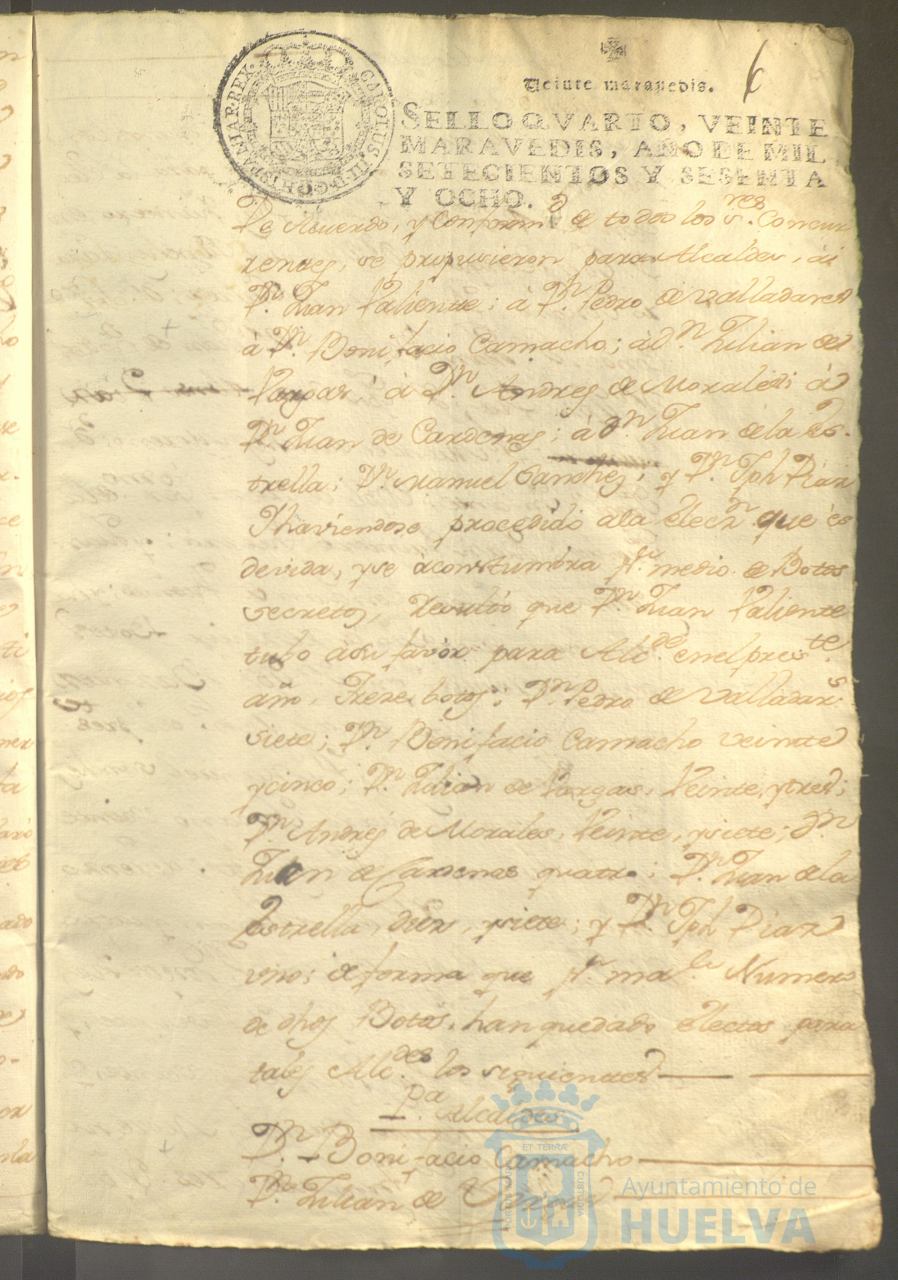 CAROLUS III D.G. HISPANIAR REX
Veinte maravedis.
6
SELLO QVARTO, VEINTE
MARAVEDIS, AÑO DE MIL
SETECIENTOS Y SESENTA
Y OCHO.
De Acuerdo, y Conformd. de todos los Sres. Concur
rentes, se propusieron para Alcaldes, á
Dn. Juan Valiente; á Dn. Pedro de Valladares
á Dn. Bonifacio Camacho; á dn. Julian de
Vargas; á Dn. Andres de Morales; á
Dn. Juan de Cardenas; á dn. Juan de la Es-
trella; Dn. Manuel Sanchez, y Dn. Jph Diaz
Y haviendose procedido ala elecn. que es
devida, y se acostumbra pr. medio de Botos
secretos, Resultó que Dn. Juan Valiente
tubo asu favor para Alcde. enel preste.
año, Trese botos; Dn. Pedro de Valladars.
siete; Dn. Bonifacio Camacho veinte
ycinco; Dn. Julian de Vargas, Veinte, ytres;
Dn. Andres de Morales, Veinte, ysiete; Dn.
Juan de Cardenas quatro; Dn. Juan de la
Estrella, diez, ysiete; y Dn. Jph Diaz
uno; de forma que pr. maor. Numero
de dhos Botos, han quedado electos para
tales Alcdes. los siguientes
Pa. Alcaldes
Dn. Bonifacio Camacho
Dn. Julian de Vargas
ET TERRAE
Ayuntamiento de
HUELVA